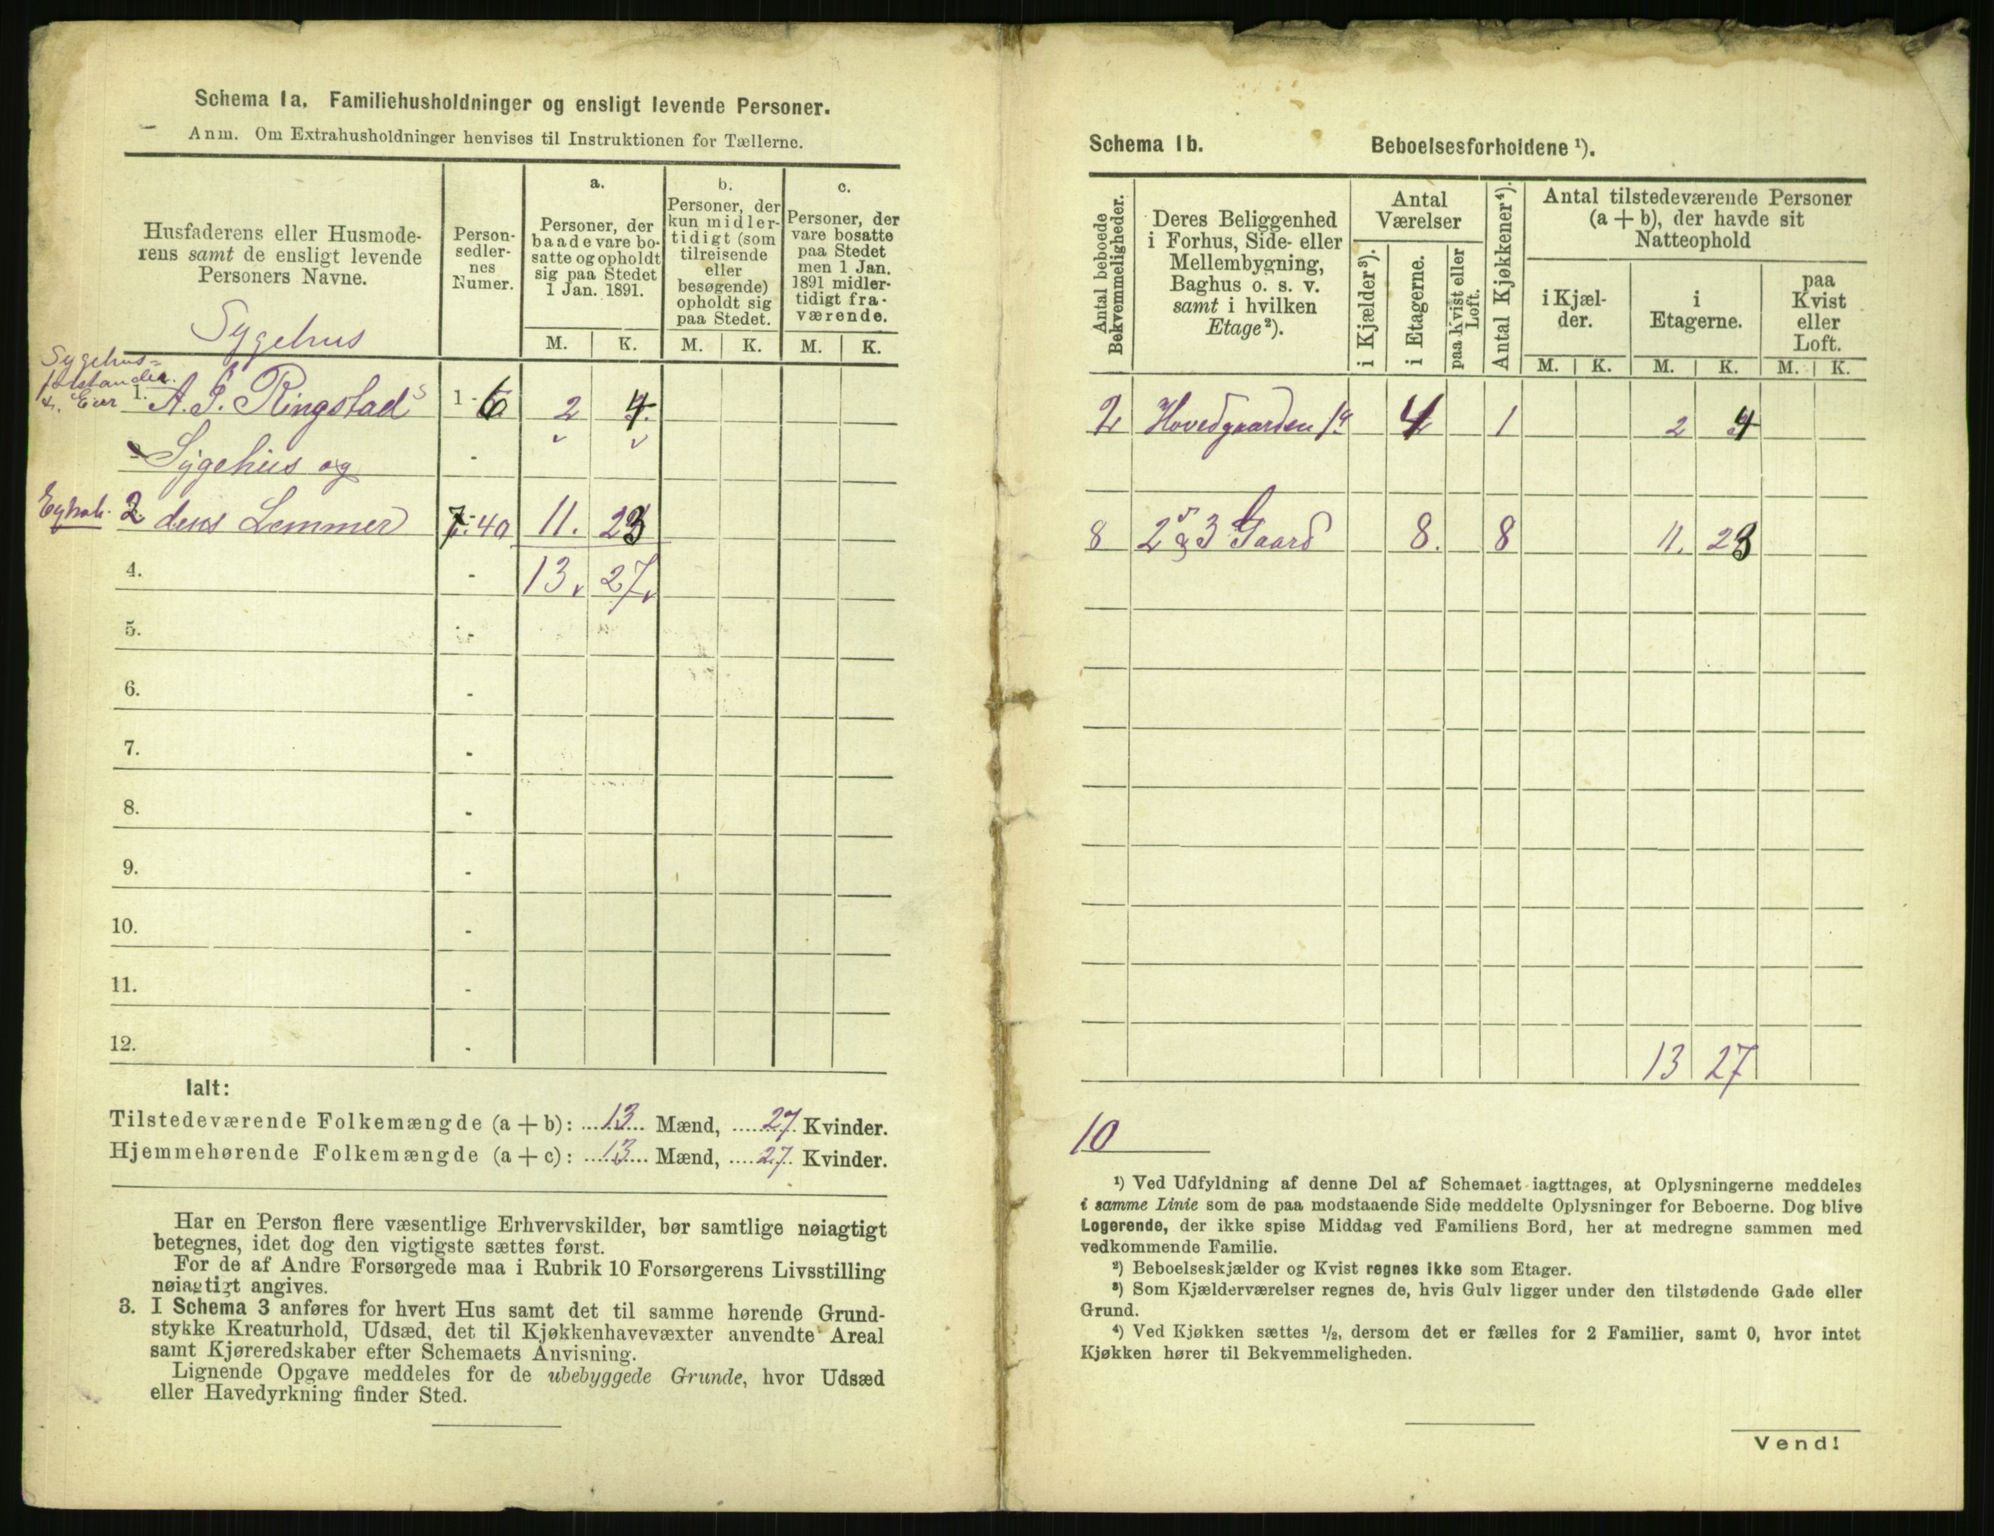 Schema 1a. Familiehusholdninger og ensligt levende Personer.
Anm. Om Extrahusholdninger henvises til Instruktionen for Tællerne.
Husfaderens eller Husmoderens samt de ensligt levende Personers Navne.
Person-sedler-nes Numer.
a.
Personer, der baade vare bosatte og opholdt sig paa Stedet 1 Jan. 1891.
b.
Personer, der kun midlertidigt (som tilreisende eller besøgende) opholdt sig paa Stedet.
c.
Personer, der vare bosatte paa Stedet men 1 Jan. 1891 midlertidigt fraværende.
M. K. M. K. M. K.
Sygehus
Sygehus=
& Eier 1. A. Ringstads 1 - 6 2 4
Sygehus og -
2 dens Lemmer 7-40 11. 23
4. - 13. 27.
5. -
6. -
7. -
8. -
9. -
10. -
11. -
12. -
Ialt:
Tilstedeværende Folkemængde (a + b): 13 Mænd, 27 Kvinder.
Hjemmehørende Folkemængde (a + c): 13 Mænd, 27 Kvinder.
Har en Person flere væsentlige Erhvervskilder, bør samtlige nøiagtigt
betegnes, idet dog den vigtigste sættes først.
For de af Andre Forsørgede maa i Rubrik 10 Forsørgerens Livsstilling
nøiagtigt angives.
3. I Schema 3 anføres for hvert Hus samt det til samme hørende Grund-
stykke Kreaturhold, Udsæd, det til Kjøkkenhavevæxter anvendte Areal
samt Kjøreredskaber efter Schemaets Anvisning.
Lignende Opgave meddeles for de ubebyggede Grunde, hvor Udsæd
eller Havedyrkning finder Sted.
Schema 1b. Beboelsesforholdene ¹).
Antal beboede Bekvemmeligheder.
Deres Beliggenhed i Forhus, Side- eller Mellembygning, Baghus o. s. v. samt i hvilken Etage²).
Antal Værelser
i Kjælder³).
i Etagerne.
paa Kvist eller Loft.
Antal Kjøkkener⁴).
Antal tilstedeværende Personer (a + b), der havde sit Natteophold
i Kjælder.
i Etagerne.
paa Kvist eller Loft.
M. K. M. K. M. K.
2 Hovedgaarden 1a 4 1 2 4
8 2 & 3 Gaard 8. 8 11. 23
13 27
10
¹) Ved Udfyldning af denne Del af Schemaet iagttages, at Oplysningerne meddeles
i samme Linie som de paa modstaaende Side meddelte Oplysninger for Beboerne. Dog blive
Logerende, der ikke spise Middag ved Familiens Bord, her at medregne sammen med
vedkommende Familie.
²) Beboelseskjælder og Kvist regnes ikke som Etager.
³) Som Kjælderværelser regnes de, hvis Gulv ligger under den tilstødende Gade eller
Grund.
⁴) Ved Kjøkken sættes ½, dersom det er fælles for 2 Familier, samt 0, hvor intet
Kjøkken hører til Bekvemmeligheden.
Vend!